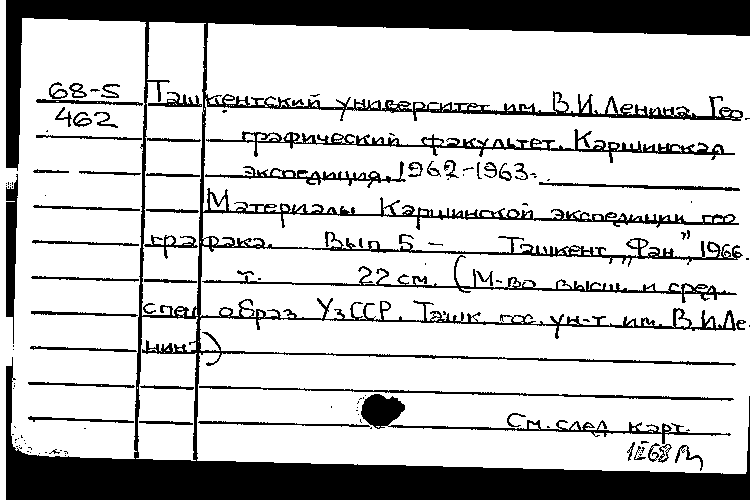 68-5 Ташкентский университет им. В.И.Ленина. Гео-
462
графический факультет. Каршинская
экспедиция. 1962-1963.
Материалы Каршинской экспедиции гео
графака. Вып 5 – Ташкент, „Фан”, 1966.
т. 22 см. (М-во высш. и сред.
спец образ. УзССР. Ташк. гос. ун-т. им. В.И.Ле-
нина)
См. след. карт.